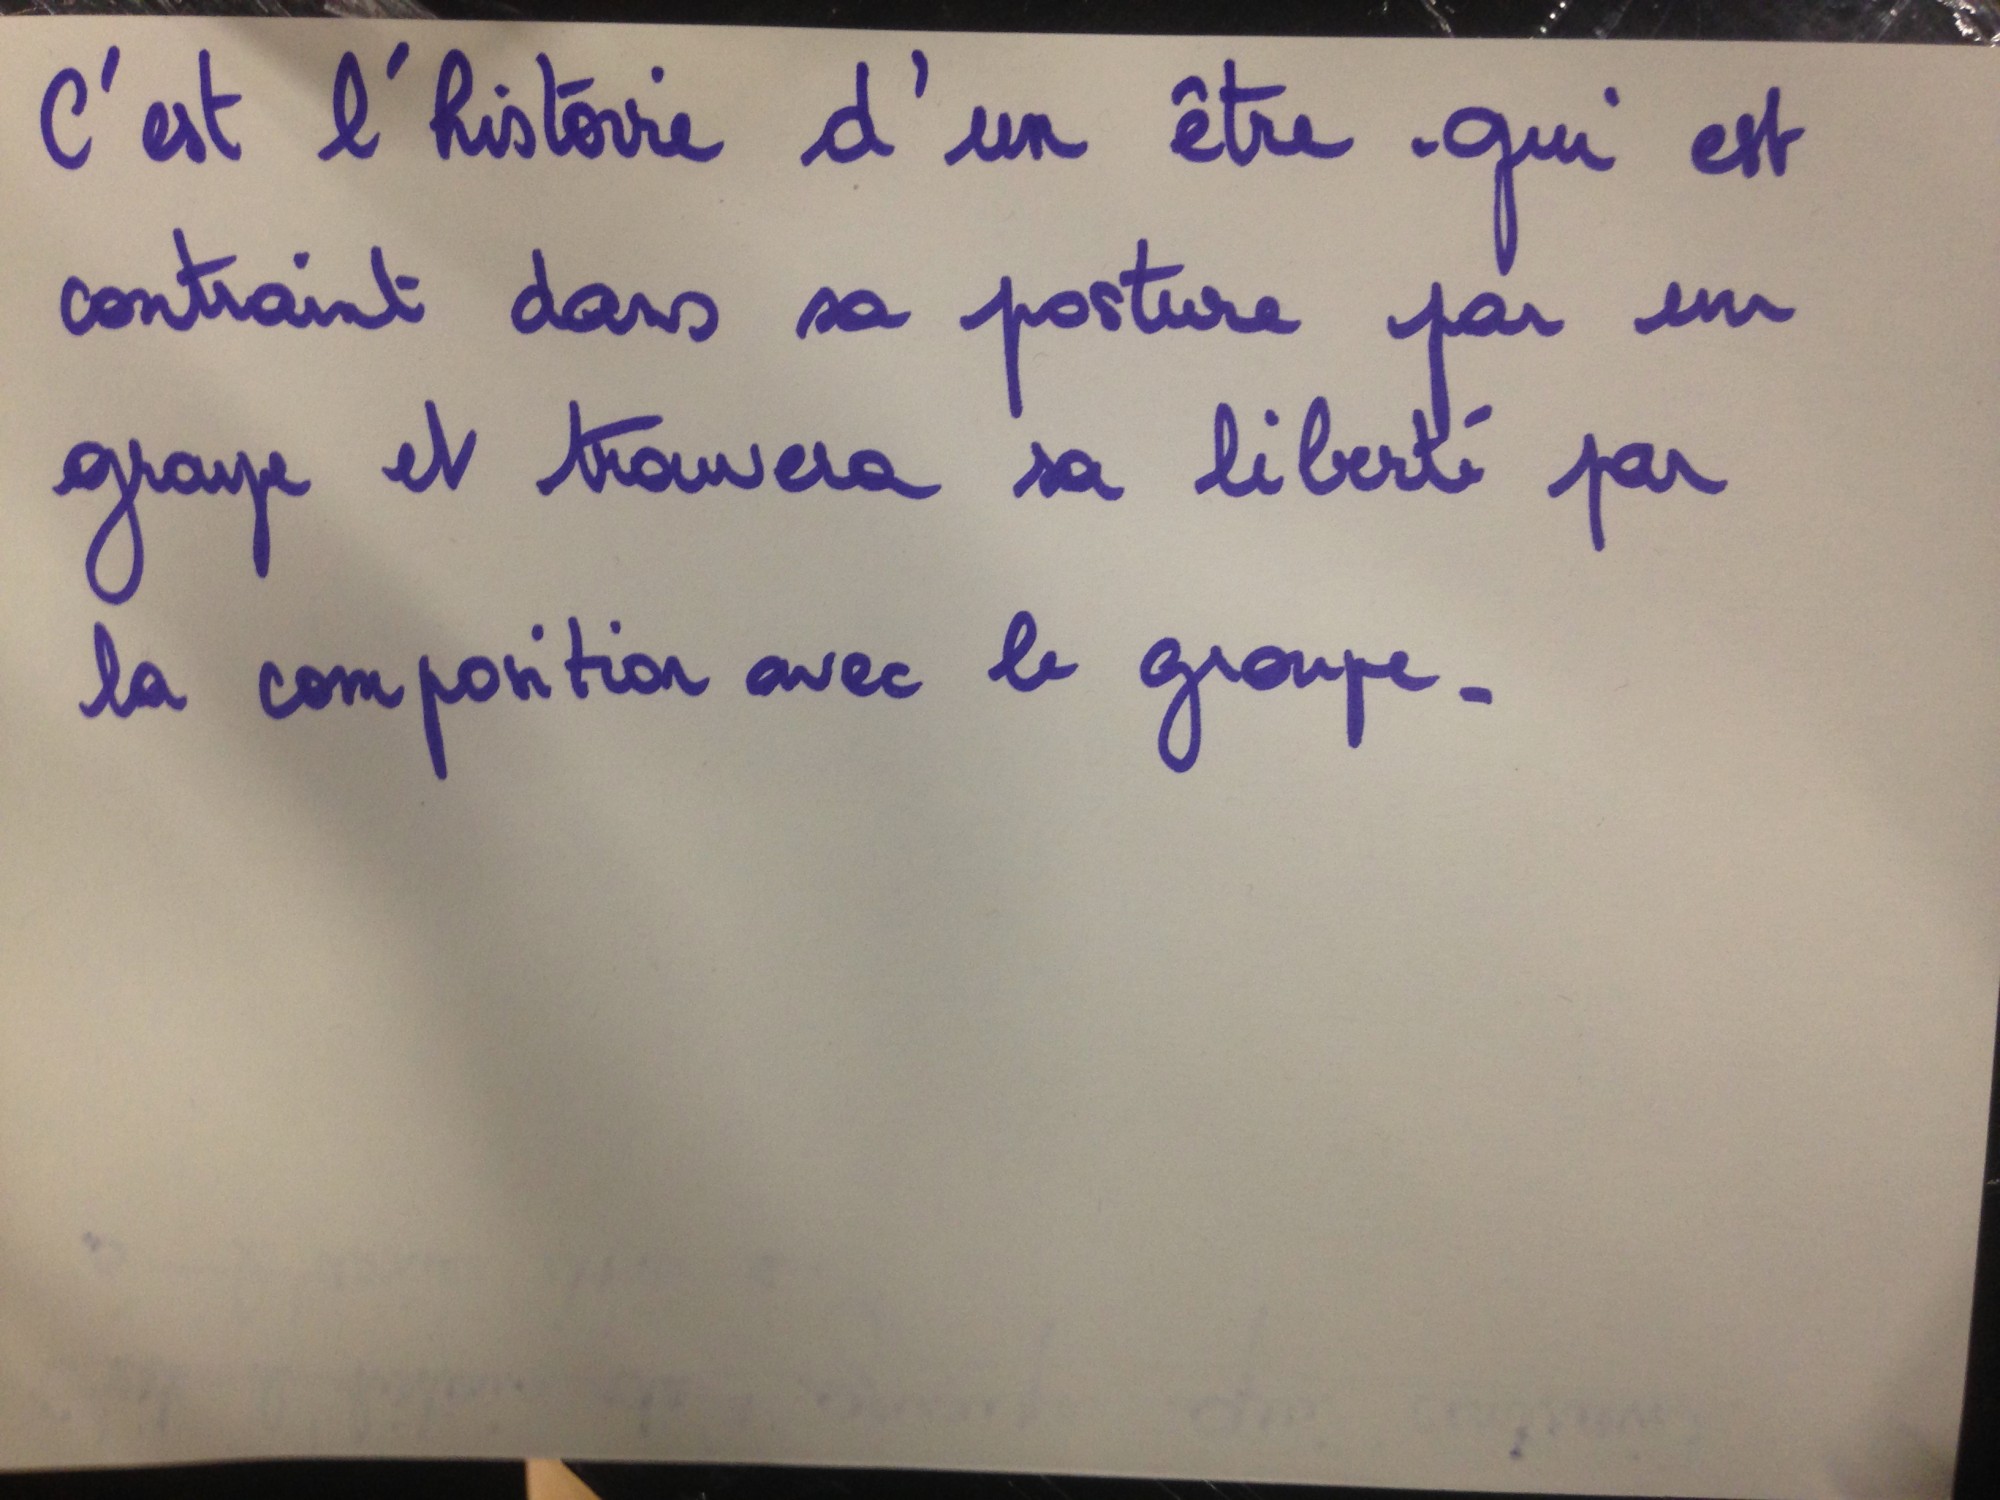 C'est l'histoire d'un être qui est
contraint dans sa posture par un
groupe et trouvera sa liberté par
la composition avec le groupe.